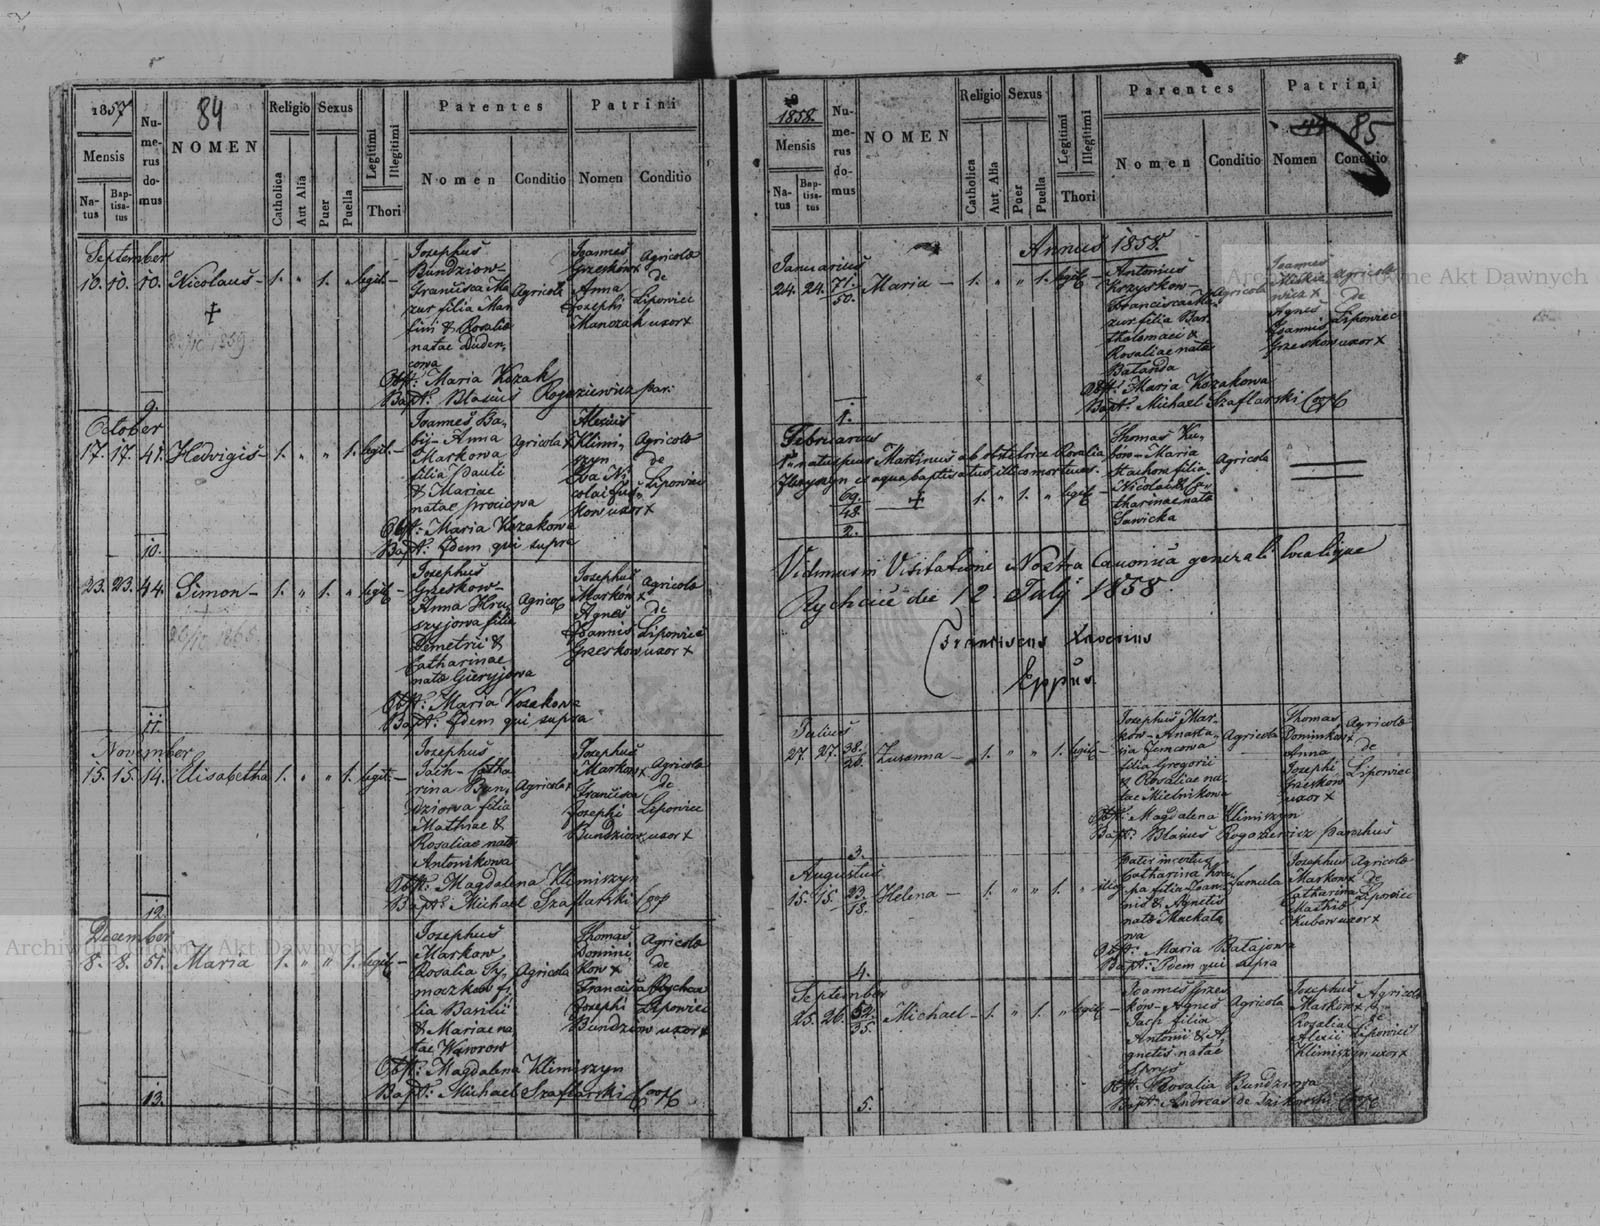 1857
84
Mensis
Natus
Baptisatus
Numerus domus
NOMEN
Religio
Catholica
Aut Alia
Sexus
Puer
Puella
Legitimi
Illegitimi
Thori
Parentes
Nomen
Conditio
Patrini
Nomen
Conditio
September
10. 10. 10. Nicolaus - 1. " 1. " legit. -
Josephus
Bundziow -
Francisca Ma
zur filia Mar
tini & Rosaliae
natae Duden,
cowa
Agricola
Joannes
Grzeskow x
Anna
Josephi
Manozak uxor x
Agricola
de
Lipowiec
Obst: Maria Kozak
Bapt: Blasius Rogoziewicz par:
9.
October
17. 17. 41. Hedvigis - 1. " " 1. legit. -
Joannes Ba,
bij - Anna
Markowa
filia Pauli
& Mariae
natae
Agricola x
Alexius
Klimi,
szyn
Eva Ni
colai
kow uxor x
Agricola
de
Lipowiec
Obst: Maria Kozakowa
Bapt: Idem qui supra
10.
23. 23. 44. Simon - 1. " 1. " legit -
Josephus
Grzeskow -
Anna Hru,
szyjowa filia
Demetrii &
Catharinae
nata Gieryjowa
Agricol
Josephus
Markow x
Agnes
Joannis
Grzeskow uxor x
Agricola
de
Lipowiec
Obst: Maria Kozakowa
Bapt: Idem qui supra
11.
November
15. 15. 14. Elisabetha 1. " " 1. legit. -
Josephus
Jach - Catha
rina Bun,
dziowa filia
Mathiae &
Rosaliae nata
Antonikowa
Agricola x
Josephus
Markow x
Francisca
Josephi
Bundziow uxor x
Agricola
de
Lipowiec
Obst: Magdalena Klimiszyn
Bapt: Michael Szaflarski Coop
12.
December
8. 8. 51. Maria 1. " " 1. legit -
Josephus
Markow
Rosalia Ty,
moczkow fi
lia Basilii
& Mariae na
tae Waworow
Agricola
Thomas
Domini
kow x
Francisca
Josephi
Bundziow uxor x
Agricola
de
Rychcice
Lipowiec
Obst: Magdalena Klimiszyn
Bapt: Michael Szaflarski Coop
13.
1858.
85
Mensis
Natus
Baptisatus
Numerus domus
NOMEN
Religio
Catholica
Aut Alia
Sexus
Puer
Puella
Legitimi
Illegitimi
Thori
Parentes
Nomen
Conditio
Patrini
Nomen
Conditio
Annus 1858.
Januarius
24. 24. 71. 50. Maria - 1. " " 1. legit -
Antonius
Krzyskow -
Francisca Ma,
zur filia Bar,
tholomaei &
Rosaliae nata
Balanda
Agricola
Joannes
Agnes
Joannis
Grzeskow uxor x
Agricola
de
Lipowiec
Obst: Maria Kozakowa
Bapt: Michael Szaflarski Coop
1.
Februarius
1. natus puer Martinus ab obstetrice Rosalia
ex aqua baptisatus illico mortuus.
69. 48. 1. " 1. " legit -
Thomas Ku,
bow - Maria
Stachow filia
Nicolai & Ca,
tharinae nata
Sawicka
Agricola
2.
Vidimus in Visitatione Nostra Canonica generali localique
Rychcice die 12 July 1858.
Franciscus Xaverius
Eppus
Julius
27. 27. 38. 26. Zusanna - 1. " " 1. legit -
Josephus Mar,
kow - Anasta,
zia Jemcowa
filia Gregorii
& Rosaliae na,
tae Mielnikowa
Agricola
Thomas
Dominikow x
Anna
Josephi
Grzeskow
uxor x
Agricola
de
Lipowiec
Obst: Magdalena Klimiszyn
Bapt: Blasius Rogoziewicz Parochus
3.
Augustus
15. 15. 23. 18. Helena - 1. " " 1. " illeg
Pater incertus
Catharina
filia Joan,
nis & Agnetis
nata Mackala
wa
famula
Josephus
Markow x
Catharina
Mathiae
Kubow uxor x
Agricola
de
Lipowiec
Obst: Maria Batajowa
Bapt: Idem qui supra
4.
September
25. 26. 52. 35. Michael - 1. " 1. " legit -
Joannes Grzes
kow - Agnes
Jach filia
Antonii & A,
gnetis natae
Agricola
Josephus
Markow x
Rosalia
Alexii
Klimiszyn uxor x
Agricola
de
Lipowiec
Obst: Rosalia Bundziowa
Bapt: Andreas de Coop
5.
Archiwum Główne Akt Dawnych
Archiwum Główne Akt Dawnych